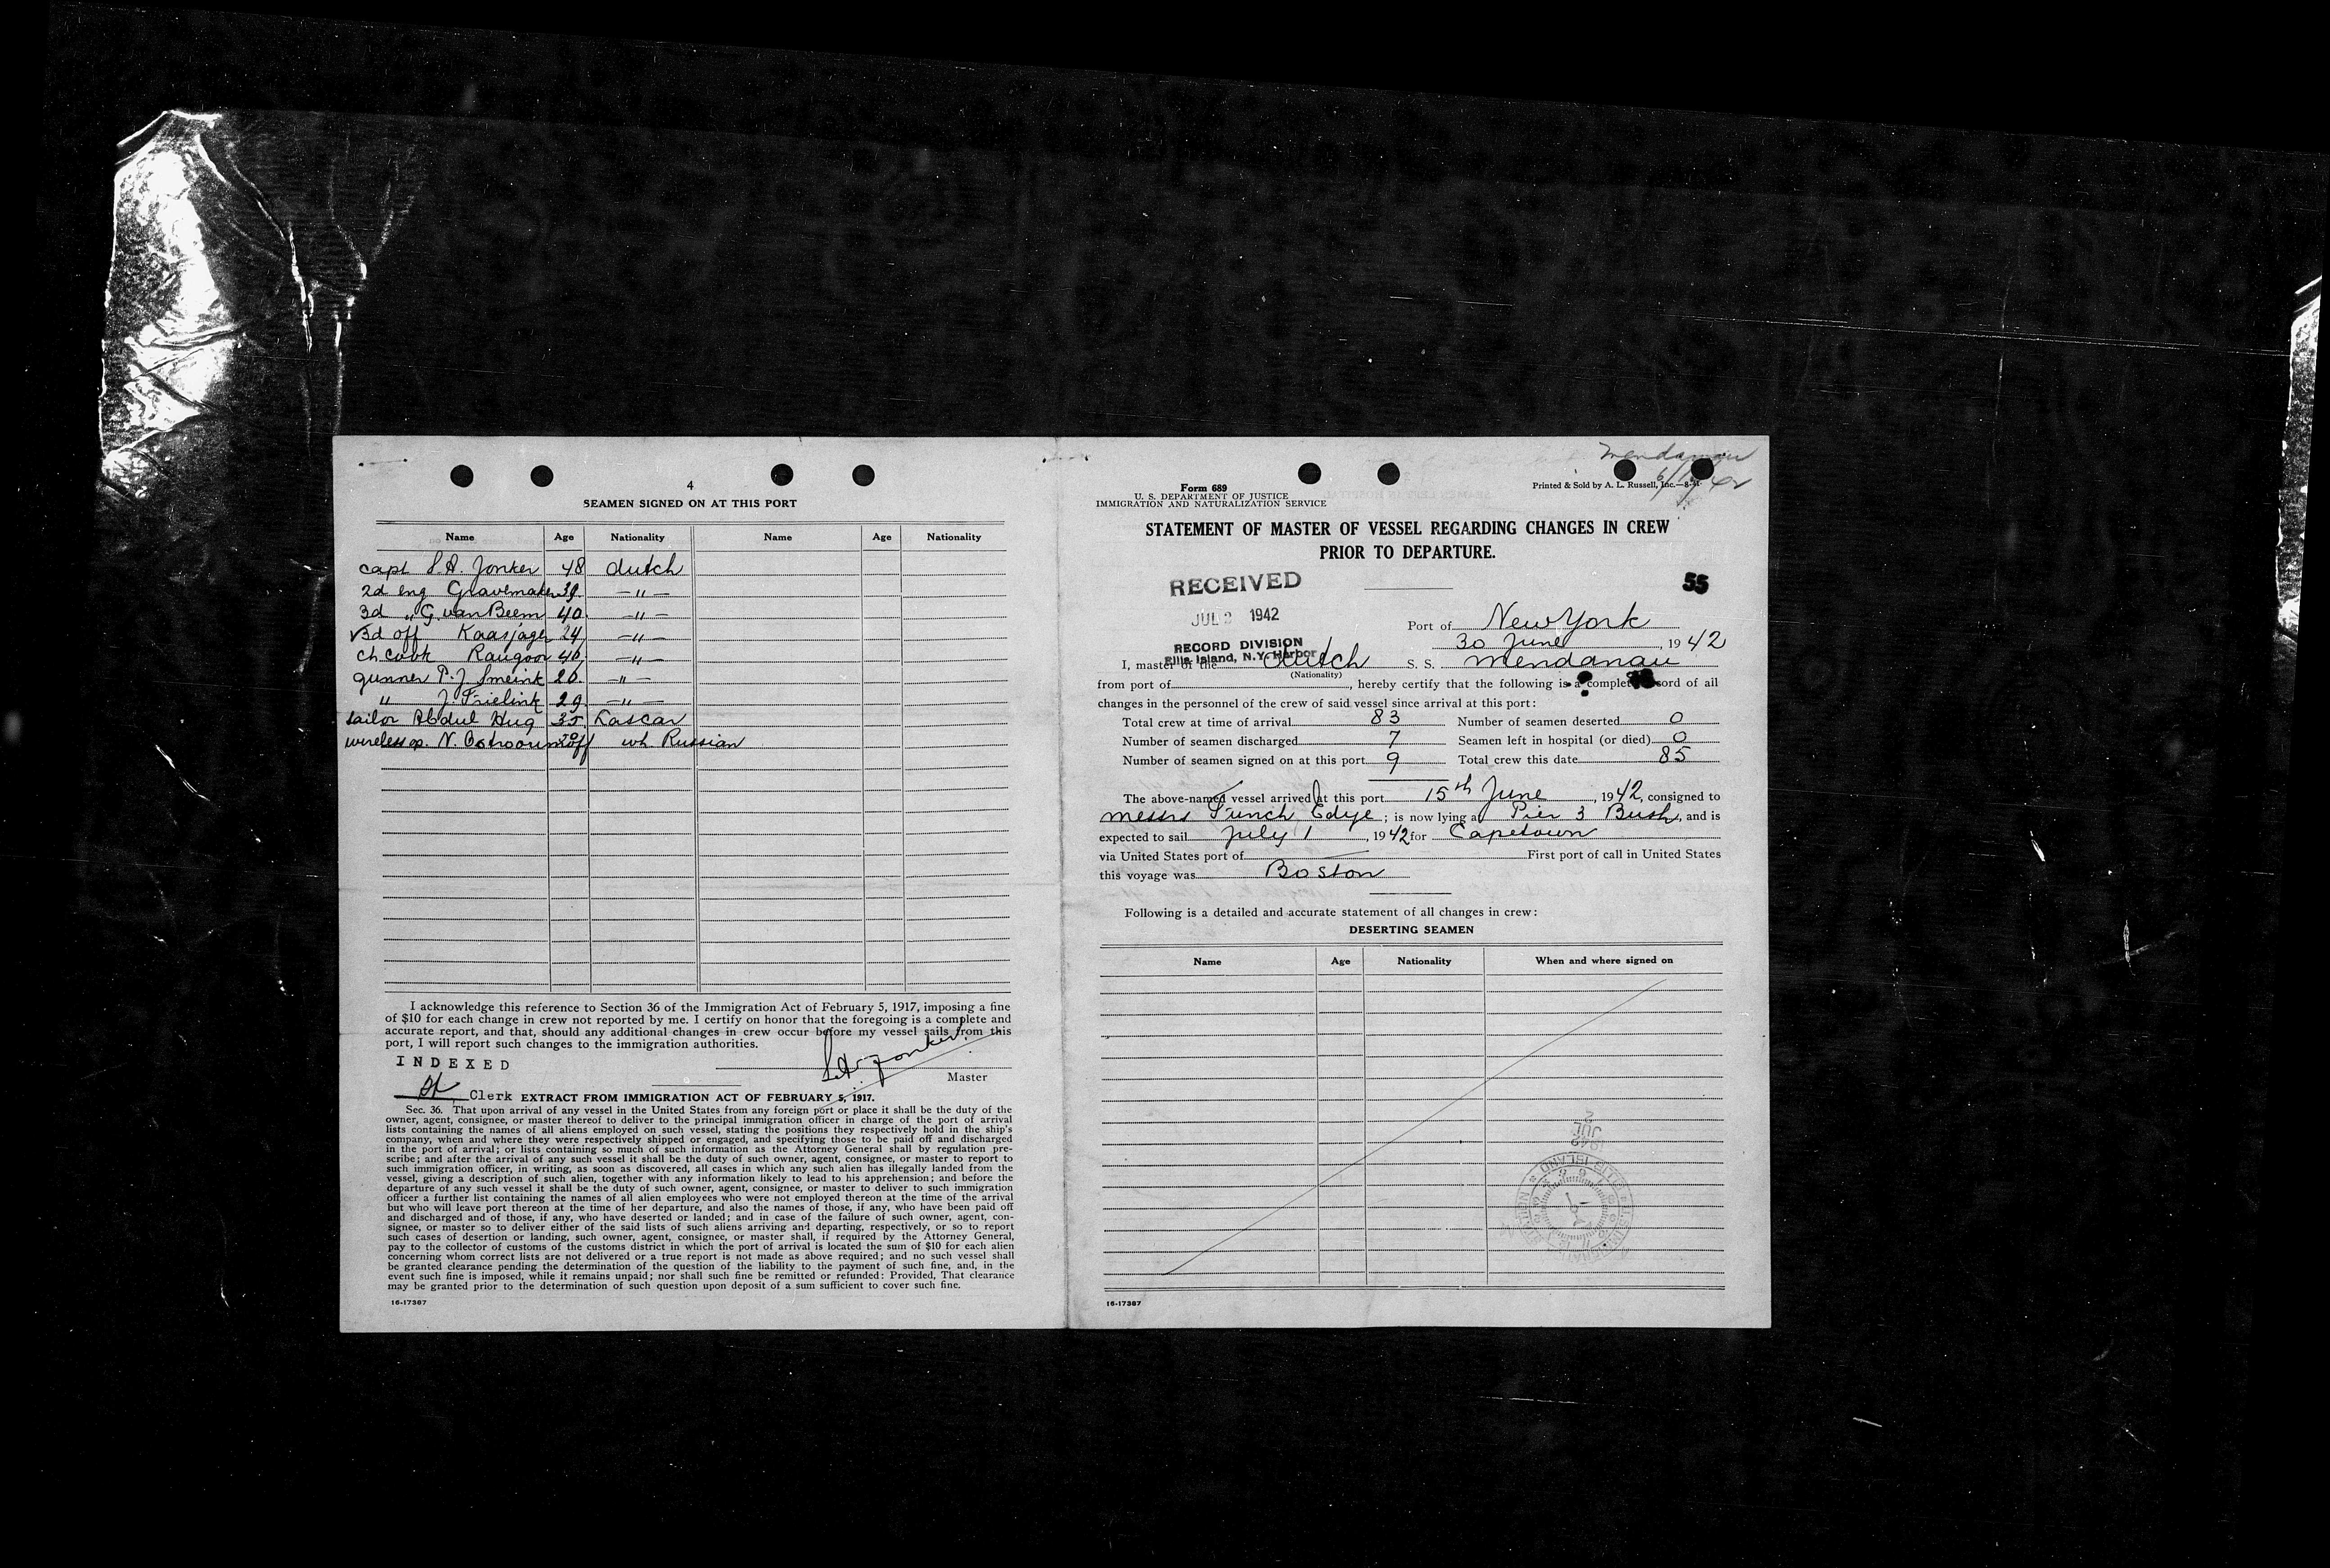 4
SEAMEN SIGNED ON AT THIS PORT
Name Age Nationality Name Age Nationality
capt S.A. Jonker 48 dutch
2d eng Gravemaker 39. —〃—
3d 〃 G. van Beem 40. —〃—
3d off Kaasjager 24 —〃—
ch. cook 40. —〃—
gunner P.J. Smeink 20. —〃—
〃 J. Frielink 29 —〃—
sailor Abdul Huq 35. Lascar
wireless op. N. wh. Russian
I acknowledge this reference to Section 36 of the Immigration Act of February 5, 1917, imposing a fine
of $10 for each change in crew not reported by me. I certify on honor that the foregoing is a complete and
accurate report, and that, should any additional changes in crew occur before my vessel sails from this
port, I will report such changes to the immigration authorities.
INDEXED
S.A. Jonker
Master
Clerk EXTRACT FROM IMMIGRATION ACT OF FEBRUARY 5, 1917.
Sec. 36. That upon arrival of any vessel in the United States from any foreign port or place it shall be the duty of the
owner, agent, consignee, or master thereof to deliver to the principal immigration officer in charge of the port of arrival
lists containing the names of all aliens employed on such vessel, stating the positions they respectively hold in the ship's
company, when and where they were respectively shipped or engaged, and specifying those to be paid off and discharged
in the port of arrival; or lists containing so much of such information as the Attorney General shall by regulation pre-
scribe; and after the arrival of any such vessel it shall be the duty of such owner, agent, consignee, or master to report to
such immigration officer, in writing, as soon as discovered, all cases in which any such alien has illegally landed from the
vessel, giving a description of such alien, together with any information likely to lead to his apprehension; and before the
departure of any such vessel it shall be the duty of such owner, agent, consignee, or master to deliver to such immigration
officer a further list containing the names of all alien employees who were not employed thereon at the time of the arrival
but who will leave port thereon at the time of her departure, and also the names of those, if any, who have been paid off
and discharged and of those, if any, who have deserted or landed; and in case of the failure of such owner, agent, con-
signee, or master so to deliver either of the said lists of such aliens arriving and departing, respectively, or so to report
such cases of desertion or landing, such owner, agent, consignee, or master shall, if required by the Attorney General,
pay to the collector of customs of the customs district in which the port of arrival is located the sum of $10 for each alien
concerning whom correct lists are not delivered or a true report is not made as above required; and no such vessel shall
be granted clearance pending the determination of the question of the liability to the payment of such fine, and, in the
event such fine is imposed, while it remains unpaid; nor shall such fine be remitted or refunded: Provided, That clearance
may be granted prior to the determination of such question upon deposit of a sum sufficient to cover such fine.
16-17387
Mendanau
Form 689
U. S. DEPARTMENT OF JUSTICE
IMMIGRATION AND NATURALIZATION SERVICE
Printed & Sold by A. L. Russell, Inc.—8-41
STATEMENT OF MASTER OF VESSEL REGARDING CHANGES IN CREW
PRIOR TO DEPARTURE.
RECEIVED
55
JUL 2 1942
Port of New York
RECORD DIVISION
30 June, 1942
Ellis Island, N.Y. Harbor
I, master of the dutch S. S. Mendanau
(Nationality)
from port of , hereby certify that the following is a complete record of all
changes in the personnel of the crew of said vessel since arrival at this port:
Total crew at time of arrival 83 Number of seamen deserted 0
Number of seamen discharged 7 Seamen left in hospital (or died) 0
Number of seamen signed on at this port 9 Total crew this date 85
The above-named vessel arrived at this port 15th June, 1942, consigned to
Messrs Funch Edye; is now lying at Pier 3 Bush, and is
expected to sail July 1, 1942 for Capetown
via United States port of — First port of call in United States
this voyage was Boston
Following is a detailed and accurate statement of all changes in crew:
DESERTING SEAMEN
Name Age Nationality When and where signed on
1942
JUL 2
ELLIS ISLAND
16-17387